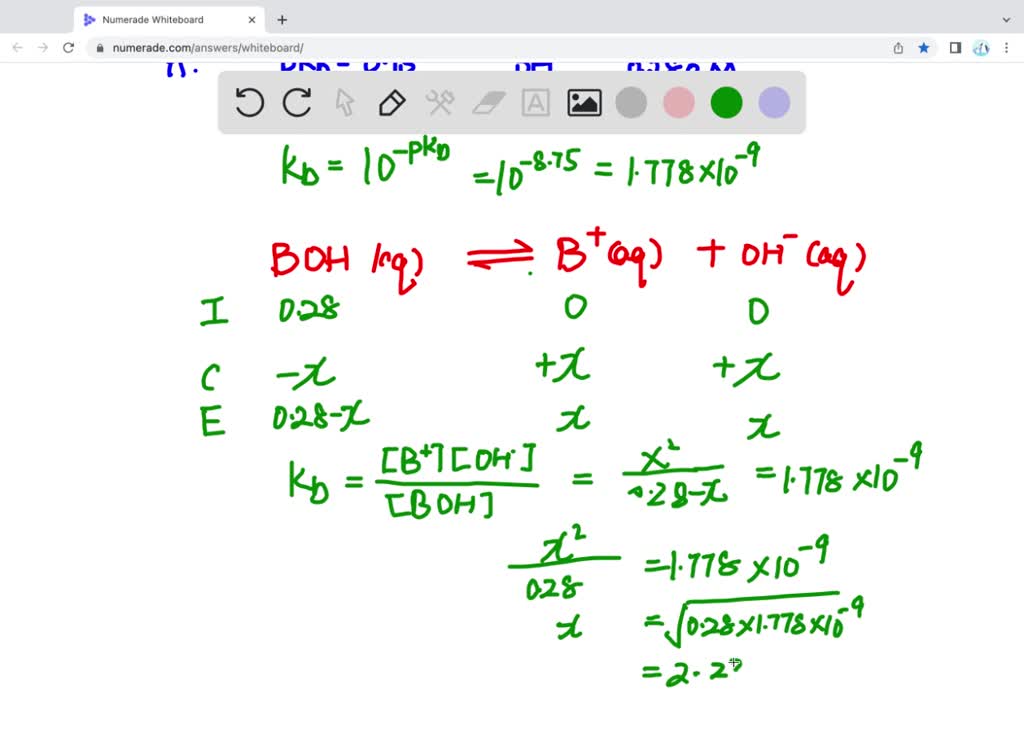 Numerade Whiteboard
numerade.com/answers/whiteboard/
A
K_b = 10^-pK_b = 10^-8.75 = 1.778×10^-9
BOH (aq) ⇌ B^+ (aq) + OH^- (aq)
I 0.28 0 0
C -x +x +x
E 0.28-x x x
K_b = [B^+][OH^-] / [BOH] = x^2 / 0.28-x = 1.778×10^-9
x^2 / 0.28 = 1.778×10^-9
x = √0.28×1.778×10^-9
= 2.2